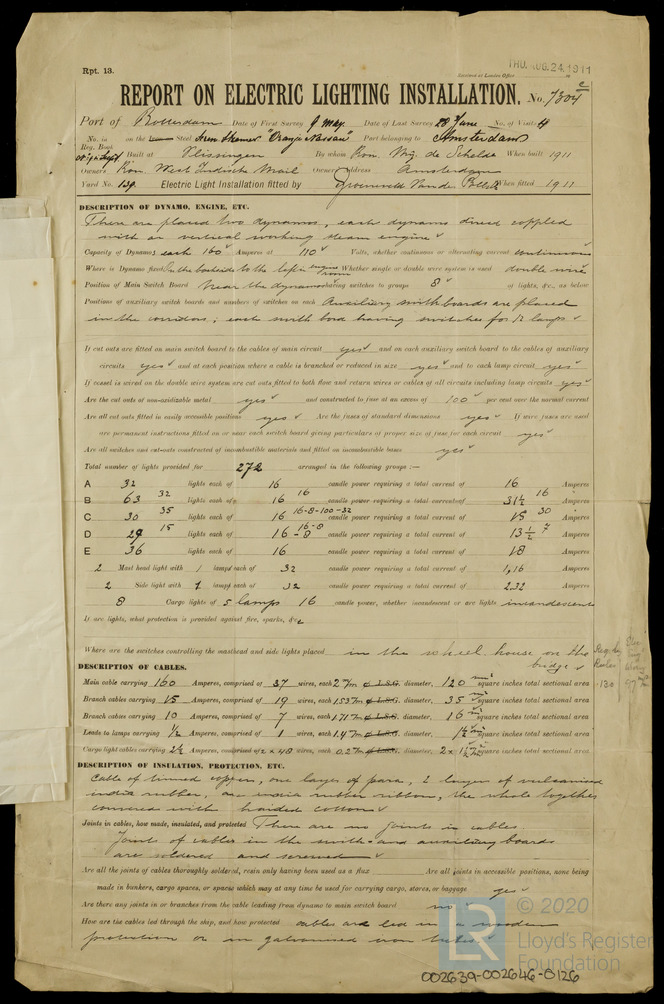 Rpt. 13.
THU. AUG. 24. 1911
Received at London Office
REPORT ON ELECTRIC LIGHTING INSTALLATION. No. 7304
Port of Rotterdam Date of First Survey 9 May Date of Last Survey 28 June No. of Visits 4
No. in Reg. Book on the Iron Steel Screw Steamer "Oranje Nassau" Port belonging to Amsterdam
Built at Vlissingen By whom Kon. Mij. de Schelde When built 1911
Owners Kon. West Indische Mail Owners' Address Amsterdam
Yard No. 139. Electric Light Installation fitted by Groeneveld Van der Poll & When fitted 1911
DESCRIPTION OF DYNAMO, ENGINE, ETC.
There are placed two dynamos, each dynamo direct coppled
with an vertical working steam engine
Capacity of Dynamo each 160 Amperes at 110 Volts, whether continuous or alternating current continuous
Where is Dynamo fixed In the backside to the left in engine room Whether single or double wire system is used double wire
Position of Main Switch Board Near the dynamos having switches to groups 8 of lights, &c., as below
Positions of auxiliary switch boards and numbers of switches on each Auxiliary switchboards are placed
in the corridors; each swith bord having switches for 12 lamps
If cut outs are fitted on main switch board to the cables of main circuit yes and on each auxiliary switch board to the cables of auxiliary
circuits yes and at each position where a cable is branched or reduced in size yes and to each lamp circuit yes
If vessel is wired on the double wire system are cut outs fitted to both flow and return wires or cables of all circuits including lamp circuits yes
Are the cut outs of non-oxidizable metal yes and constructed to fuse at an excess of 100 per cent over the normal current
Are all cut outs fitted in easily accessible positions yes Are the fuses of standard dimensions yes If wire fuses are used
are permanent instructions fitted on or near each switch board giving particulars of proper size of fuse for each circuit yes
Are all switches and cut-outs constructed of incombustible materials and fitted on incombustible bases yes
Total number of lights provided for 272 arranged in the following groups :—
A 32 lights each of 16 candle power requiring a total current of 16 Amperes
B 63 32 lights each of 16 16 candle power requiring a total current of 31½ 16 Amperes
C 30 35 lights each of 16 16-8-100-32 candle power requiring a total current of 15 30 Amperes
D 29 15 lights each of 16-8 16-8 candle power requiring a total current of 13½ 7 Amperes
E 36 lights each of 16 candle power requiring a total current of 18 Amperes
2 Mast head light with 1 lamps each of 32 candle power requiring a total current of 1,16 Amperes
2 Side light with 1 lamps each of 32 candle power requiring a total current of 2.32 Amperes
8 Cargo lights of 5 lamps 16 candle power, whether incandescent or arc lights incandescent
If arc lights, what protection is provided against fire, sparks, &c.
Where are the switches controlling the masthead and side lights placed in the wheel house on the
bridge
DESCRIPTION OF CABLES.
Main cable carrying 160 Amperes, comprised of 37 wires, each 2 m/m L.S.G. diameter, 120 square inches total sectional area
Branch cables carrying 15 Amperes, comprised of 19 wires, each 1.53 m/m L.S.G. diameter, 35 square inches total sectional area
Branch cables carrying 10 Amperes, comprised of 7 wires, each 1.71 m/m L.S.G. diameter, 16 square inches total sectional area
Leads to lamps carrying ½ Amperes, comprised of 1 wires, each 1.4 m/m L.S.G. diameter, 1½ square inches total sectional area
Cargo light cables carrying 2½ Amperes, comprised of 2 x 48 wires, each 0.2 m/m L.S.G. diameter, 2 x 1½ square inches total sectional area
DESCRIPTION OF INSULATION, PROTECTION, ETC.
Cable of tinned copper, one layer of para, 2 layer of vulcanised
india rubber, one india rubber ribbon, the whole together
covered with braided cotton
Joints in cables, how made, insulated, and protected There are no joints in cables
Joints of cables in the swith- and auxiliary boards
are soldered and screwed
Are all the joints of cables thoroughly soldered, resin only having been used as a flux Are all joints in accessible positions, none being
made in bunkers, cargo spaces, or spaces which may at any time be used for carrying cargo, stores, or baggage yes
Are there any joints in or branches from the cable leading from dynamo to main switch board no
How are the cables led through the ship, and how protected cables are led in a wooden
protection or in galvanised iron tubes
LR © 2020
Lloyd's Register
Foundation
002639-002646-0126